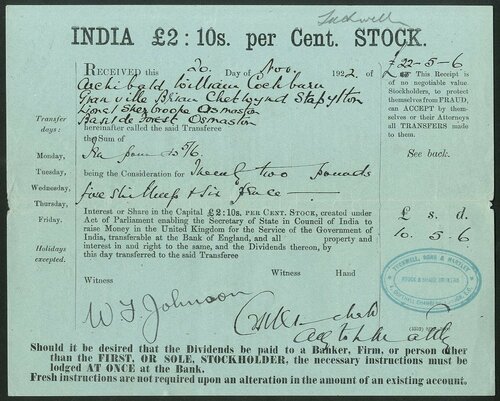 Tudwell
INDIA £2 : 10s. per Cent. STOCK.
RECEIVED this 20 Day of Nov. 1922 of
£22-5-6
Archibald William Cockburn
Granville Brian Chetwynd Stapylton
Lionel Sherbrooke Osmaston
Basil de Forest Osmaston
hereafter called the said Transferee
This Receipt is of no negotiable value
Stockholders, to protect themselves from FRAUD, can ACCEPT by themselves or their Attorneys all TRANSFERS made to them.
See back.
Transfer days:
Monday,
Tuesday,
Wednesday,
Thursday,
Friday.
Holidays excepted.
the Sum of
Ten pounds 5/6
being the Consideration for Twenty two pounds
five shillings & six pence
Interest or Share in the Capital £2:10s. PER CENT. STOCK, created under
Act of Parliament enabling the Secretary of State in Council of India to
raise Money in the United Kingdom for the Service of the Government of
India, transferable at the Bank of England, and all property and
interest in and right to the same, and the Dividends thereon, by
this day transferred to the said Transferee
£ s. d.
10. 5. 6
Witness Hand
Witness
Witness
W. F. Johnson
STOCK & SHARE BROKERS
Should it be desired that the Dividends be paid to a Banker, Firm, or person other
than the FIRST, OR SOLE, STOCKHOLDER, the necessary instructions must be
lodged AT ONCE at the Bank.
Fresh instructions are not required upon an alteration in the amount of an existing account.